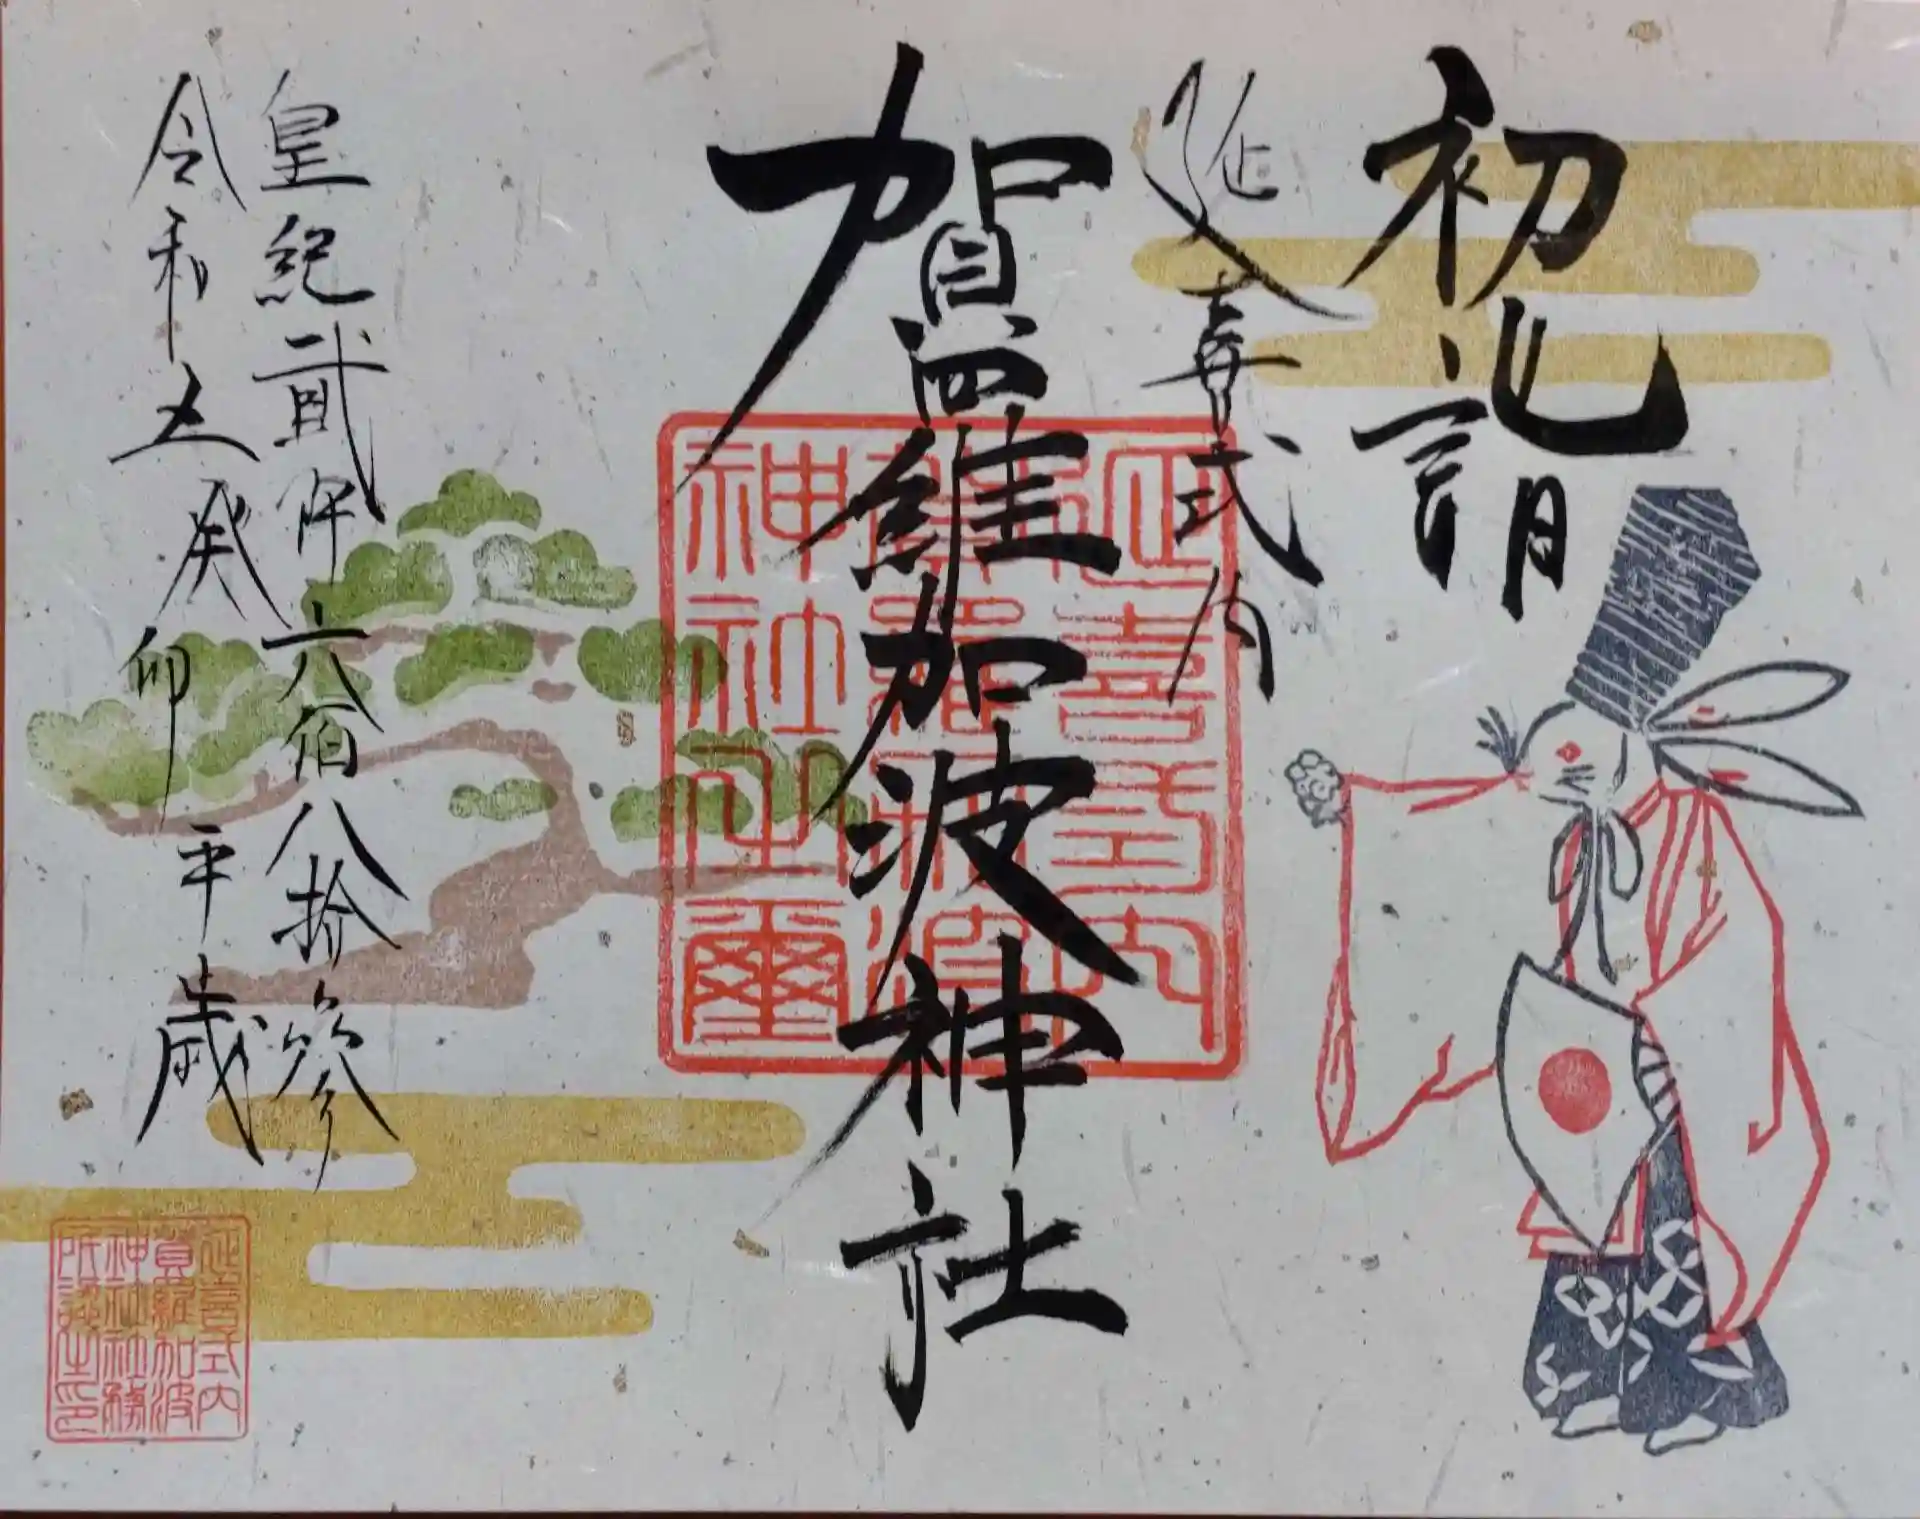 初詣
延喜式内
賀羅加波神社
皇紀貳仟六佰八拾参
令和五癸卯年歳
延喜式内
賀羅加波
神社之璽
延喜式内
賀羅加波
神社社務
所認之印